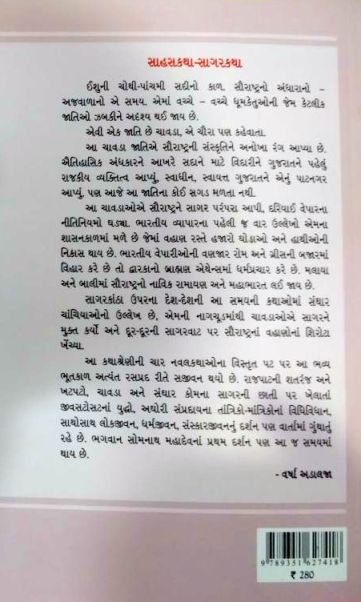 સાહસકથા-સાગરકથા
ઈશુની ચોથી-પાંચમી સદીનો કાળ. સૌરાષ્ટ્રનો અંધારાનો -
અજવાળાનો એ સમય. એમાં વચ્ચે - વચ્ચે ધૂમકેતુઓની જેમ કેટલીક
જાતિઓ ઝબકીને અદશ્ય થઈ જાય છે.
એવી એક જાતિ છે ચાવડા, એ ચૌરા પણ કહેવાતા.
આ ચાવડા જાતિએ સૌરાષ્ટ્રની સંસ્કૃતિને અનોખા રંગ આપ્યા છે.
ઐતિહાસિક અંધકારને આખરે સદાને માટે વિદારીને ગુજરાતને પહેલું
રાજકીય વ્યક્તિત્વ આપ્યું, સ્વાધીન, સ્વાયત્ત ગુજરાતને એનું પાટનગર
આપ્યું. પણ આજે આ જાતિના કોઈ સગડ મળતા નથી.
આ ચાવડાઓએ સૌરાષ્ટ્રને સાગર પરંપરા આપી, દરિયાઈ વેપારના
નીતિનિયમો ઘડ્યા. ભારતીય વ્યાપારના પહેલી જ વાર ઉલ્લેખો એમના
શાસનકાળમાં મળે છે જેમાં વહાણ રસ્તે હજારો ઘોડાઓ અને હાથીઓની
નિકાસ થાય છે. ભારતીય વેપારીઓની વણજાર રોમ અને ગ્રીસની બજારમાં
વિહાર કરે છે તો દ્વારકાનો બ્રાહ્મણ એથેન્સમાં ધર્મપ્રચાર કરે છે. મલાયા
અને બાલીમાં સૌરાષ્ટ્રનો નાવિક રામાયણ અને મહાભારત લઈ જાય છે.
સાગરકાંઠા ઉપરના દેશ-દેશની આ સમયની કથાઓમાં સંઘાર
ચાંચિયાઓનો ઉલ્લેખ છે, એમની નાગચૂડમાંથી ચાવડાઓએ સાગરને
મુક્ત કર્યો અને દૂર-દૂરની સાગરવાટ પર સૌરાષ્ટ્રનાં વહાણોનાં શિરોટા
ખેંચ્યા.
આ કથાશ્રેણીની ચાર નવલકથાઓના વિસ્તૃત પટ પર આ ભવ્ય
ભૂતકાળ અત્યંત રસપ્રદ રીતે સજીવન થયો છે. રાજપાટની શતરંજ અને
ખટપટો, ચાવડા અને સંઘાર કોમના સાગરની છાતી પર ખેલાતાં
જીવસટોસટનાં યુદ્ધો, અઘોરી સંપ્રદાયના તાંત્રિકો-માંત્રિકોનાં વિધિવિધાન,
સાથોસાથ લોકજીવન, ધર્મજીવન, સંસ્કારજીવનનું દર્શન પણ વાર્તામાં ગૂંથાતું
રહે છે. ભગવાન સોમનાથ મહાદેવનાં પ્રથમ દર્શન પણ આ જ સમયમાં
થાય છે.
- વર્ષા અડાલજા
9 789351 627418
₹ 280